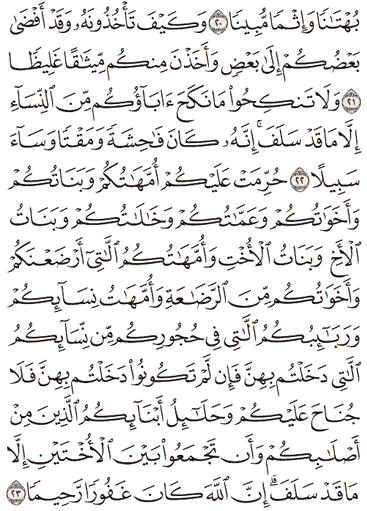 بُهْتَٰنًا وَإِثْمًا مُّبِينًا ٢٠ وَكَيْفَ تَأْخُذُونَهُۥ وَقَدْ أَفْضَىٰ
بَعْضُكُمْ إِلَىٰ بَعْضٍ وَأَخَذْنَ مِنكُم مِّيثَٰقًا غَلِيظًا
٢١ وَلَا تَنكِحُوا۟ مَا نَكَحَ ءَابَآؤُكُم مِّنَ ٱلنِّسَآءِ
إِلَّا مَا قَدْ سَلَفَ ۚ إِنَّهُۥ كَانَ فَٰحِشَةً وَمَقْتًا وَسَآءَ
سَبِيلًا ٢٢ حُرِّمَتْ عَلَيْكُمْ أُمَّهَٰتُكُمْ وَبَنَاتُكُمْ
وَأَخَوَٰتُكُمْ وَعَمَّٰتُكُمْ وَخَٰلَٰتُكُمْ وَبَنَاتُ
ٱلْأَخِ وَبَنَاتُ ٱلْأُخْتِ وَأُمَّهَٰتُكُمُ ٱلَّٰتِىٓ أَرْضَعْنَكُمْ
وَأَخَوَٰتُكُم مِّنَ ٱلرَّضَٰعَةِ وَأُمَّهَٰتُ نِسَآئِكُمْ
وَرَبَٰٓئِبُكُمُ ٱلَّٰتِى فِى حُجُورِكُم مِّن نِّسَآئِكُمُ
ٱلَّٰتِى دَخَلْتُم بِهِنَّ فَإِن لَّمْ تَكُونُوا۟ دَخَلْتُم بِهِنَّ فَلَا
جُنَاحَ عَلَيْكُمْ وَحَلَٰٓئِلُ أَبْنَآئِكُمُ ٱلَّذِينَ مِنْ
أَصْلَٰبِكُمْ وَأَن تَجْمَعُوا۟ بَيْنَ ٱلْأُخْتَيْنِ إِلَّا
مَا قَدْ سَلَفَ ۗ إِنَّ ٱللَّهَ كَانَ غَفُورًا رَّحِيمًا ٢٣